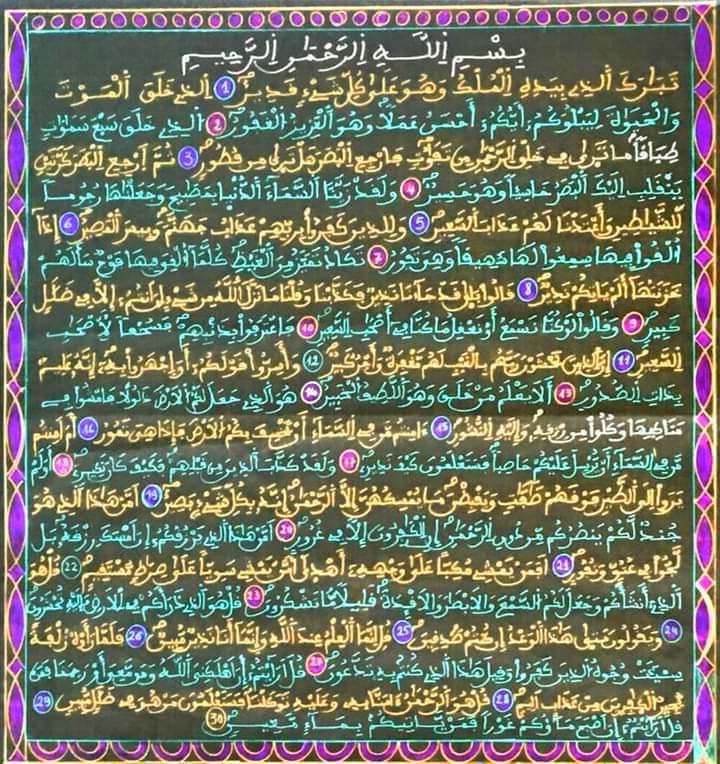 بِسْمِ اللَّهِ الرَّحْمَٰنِ الرَّحِيمِ
تَبَارَكَ الَّذِي بِيَدِهِ الْمُلْكُ وَهُوَ عَلَىٰ كُلِّ شَيْءٍ قَدِيرٌ 1 الَّذِي خَلَقَ الْمَوْتَ
وَالْحَيَوٰةَ لِيَبْلُوَكُمْ أَيُّكُمْ أَحْسَنُ عَمَلًا وَهُوَ الْعَزِيزُ الْغَفُورُ 2 الَّذِي خَلَقَ سَبْعَ سَمَٰوَٰتٍ
طِبَاقًا مَا تَرَىٰ فِي خَلْقِ الرَّحْمَٰنِ مِن تَفَٰوُتٍ فَارْجِعِ الْبَصَرَ هَلْ تَرَىٰ مِن فُطُورٍ 3 ثُمَّ ارْجِعِ الْبَصَرَ كَرَّتَيْنِ
يَنقَلِبْ إِلَيْكَ الْبَصَرُ خَاسِئًا وَهُوَ حَسِيرٌ 4 وَلَقَدْ زَيَّنَّا السَّمَاءَ الدُّنْيَا بِمَصَٰبِيحَ وَجَعَلْنَٰهَا رُجُومًا
لِّلشَّيَٰطِينِ وَأَعْتَدْنَا لَهُمْ عَذَابَ السَّعِيرِ 5 وَلِلَّذِينَ كَفَرُوا بِرَبِّهِمْ عَذَابُ جَهَنَّمَ وَبِيسَ الْمَصِيرُ 6 إِذَا
أُلْقُوا فِيهَا سَمِعُوا لَهَا شَهِيقًا وَهِيَ تَفُورُ 7 تَكَادُ تَمَيَّزُ مِنَ الْغَيْظِ كُلَّمَا أُلْقِيَ فِيهَا فَوْجٌ سَأَلَهُمْ
خَزَنَتُهَا أَلَمْ يَاتِكُمْ نَذِيرٌ 8 قَالُوا بَلَىٰ قَدْ جَاءَنَا نَذِيرٌ فَكَذَّبْنَا وَقُلْنَا مَا نَزَّلَ اللَّهُ مِن شَيْءٍ إِنْ أَنتُمْ إِلَّا فِي ضَلَٰلٍ
كَبِيرٍ 9 وَقَالُوا لَوْ كُنَّا نَسْمَعُ أَوْ نَعْقِلُ مَا كُنَّا فِي أَصْحَٰبِ السَّعِيرِ 10 فَاعْتَرَفُوا بِذَنبِهِمْ فَسُحْقًا لِّأَصْحَٰبِ
السَّعِيرِ 11 إِنَّ الَّذِينَ يَخْشَوْنَ رَبَّهُم بِالْغَيْبِ لَهُم مَّغْفِرَةٌ وَأَجْرٌ كَبِيرٌ 12 وَأَسِرُّوا قَوْلَكُمْ أَوِ اجْهَرُوا بِهِ إِنَّهُ عَلِيمٌ
بِذَاتِ الصُّدُورِ 13 أَلَا يَعْلَمُ مَنْ خَلَقَ وَهُوَ اللَّطِيفُ الْخَبِيرُ 14 هُوَ الَّذِي جَعَلَ لَكُمُ الْأَرْضَ ذَلُولًا فَامْشُوا فِي
مَنَاكِبِهَا وَكُلُوا مِن رِّزْقِهِ وَإِلَيْهِ النُّشُورُ 15 ءَامِنتُم مَّن فِي السَّمَاءِ أَنْ يَخْسِفَ بِكُمُ الْأَرْضَ فَإِذَا هِيَ تَمُورُ 16 أَمْ أَمِنتُم
مَّن فِي السَّمَاءِ أَنْ يُرْسِلَ عَلَيْكُمْ حَاصِبًا فَسَتَعْلَمُونَ كَيْفَ نَذِيرِ 17 وَلَقَدْ كَذَّبَ الَّذِينَ مِن قَبْلِهِمْ فَكَيْفَ كَانَ نَكِيرِ 18 أَوَلَمْ
يَرَوْا إِلَى الطَّيْرِ فَوْقَهُمْ صَٰفَّٰتٍ وَيَقْبِضْنَ مَا يُمْسِكُهُنَّ إِلَّا الرَّحْمَٰنُ إِنَّهُ بِكُلِّ شَيْءٍ بَصِيرٌ 19 أَمَّنْ هَٰذَا الَّذِي هُوَ
جُندٌ لَّكُمْ يَنصُرُكُم مِّن دُونِ الرَّحْمَٰنِ إِنِ الْكَٰفِرُونَ إِلَّا فِي غُرُورٍ 20 أَمَّنْ هَٰذَا الَّذِي يَرْزُقُكُمْ إِنْ أَمْسَكَ رِزْقَهُ بَل
لَّجُّوا فِي عُتُوٍّ وَنُفُورٍ 21 أَفَمَنْ يَمْشِي مُكِبًّا عَلَىٰ وَجْهِهِ أَهْدَىٰ أَمَّنْ يَمْشِي سَوِيًّا عَلَىٰ صِرَٰطٍ مُّسْتَقِيمٍ 22 قُلْ هُوَ
الَّذِي أَنشَأَكُمْ وَجَعَلَ لَكُمُ السَّمْعَ وَالْأَبْصَٰرَ وَالْأَفْئِدَةَ قَلِيلًا مَّا تَشْكُرُونَ 23 قُلْ هُوَ الَّذِي ذَرَأَكُمْ فِي الْأَرْضِ وَإِلَيْهِ تُحْشَرُونَ
24 وَيَقُولُونَ مَتَىٰ هَٰذَا الْوَعْدُ إِن كُنتُمْ صَٰدِقِينَ 25 قُلْ إِنَّمَا الْعِلْمُ عِندَ اللَّهِ وَإِنَّمَا أَنَا نَذِيرٌ مُّبِينٌ 26 فَلَمَّا رَأَوْهُ زُلْفَةً
سِيئَتْ وُجُوهُ الَّذِينَ كَفَرُوا وَقِيلَ هَٰذَا الَّذِي كُنتُم بِهِ تَدَّعُونَ 27 قُلْ أَرَأَيْتُمْ إِنْ أَهْلَكَنِيَ اللَّهُ وَمَن مَّعِيَ أَوْ رَحِمَنَا فَمَن
يُجِيرُ الْكَٰفِرِينَ مِنْ عَذَابٍ أَلِيمٍ 28 قُلْ هُوَ الرَّحْمَٰنُ ءَامَنَّا بِهِ وَعَلَيْهِ تَوَكَّلْنَا فَسَتَعْلَمُونَ مَنْ هُوَ فِي ضَلَٰلٍ مُّبِينٍ 29
قُلْ أَرَأَيْتُمْ إِنْ أَصْبَحَ مَاؤُكُمْ غَوْرًا فَمَنْ يَاتِيكُم بِمَاءٍ مَّعِينٍ 30